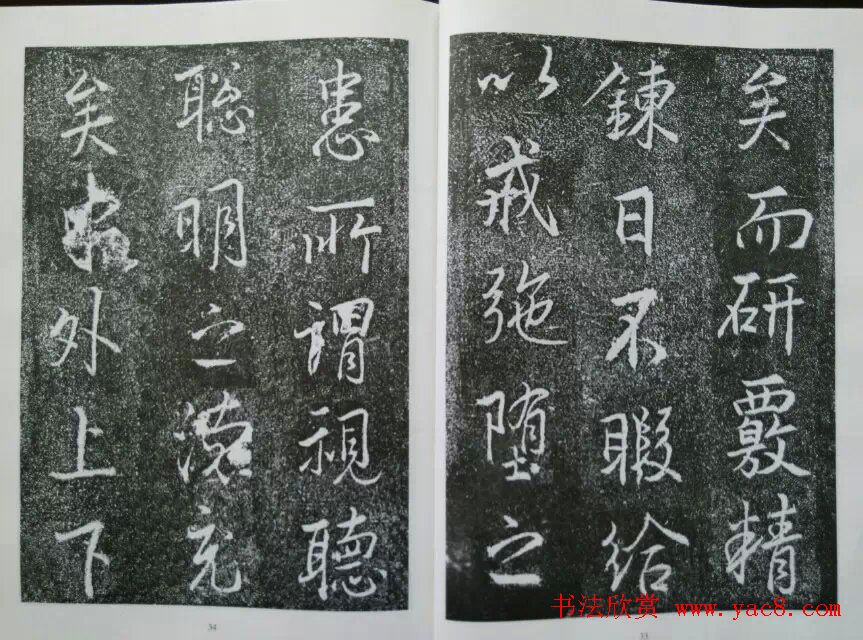 矣而研覈精
鍊日不暇給
以戒弛堕之
患所謂視聽
聡明之德充
矣外上下
34
33
书法欣赏 www.yac8.com